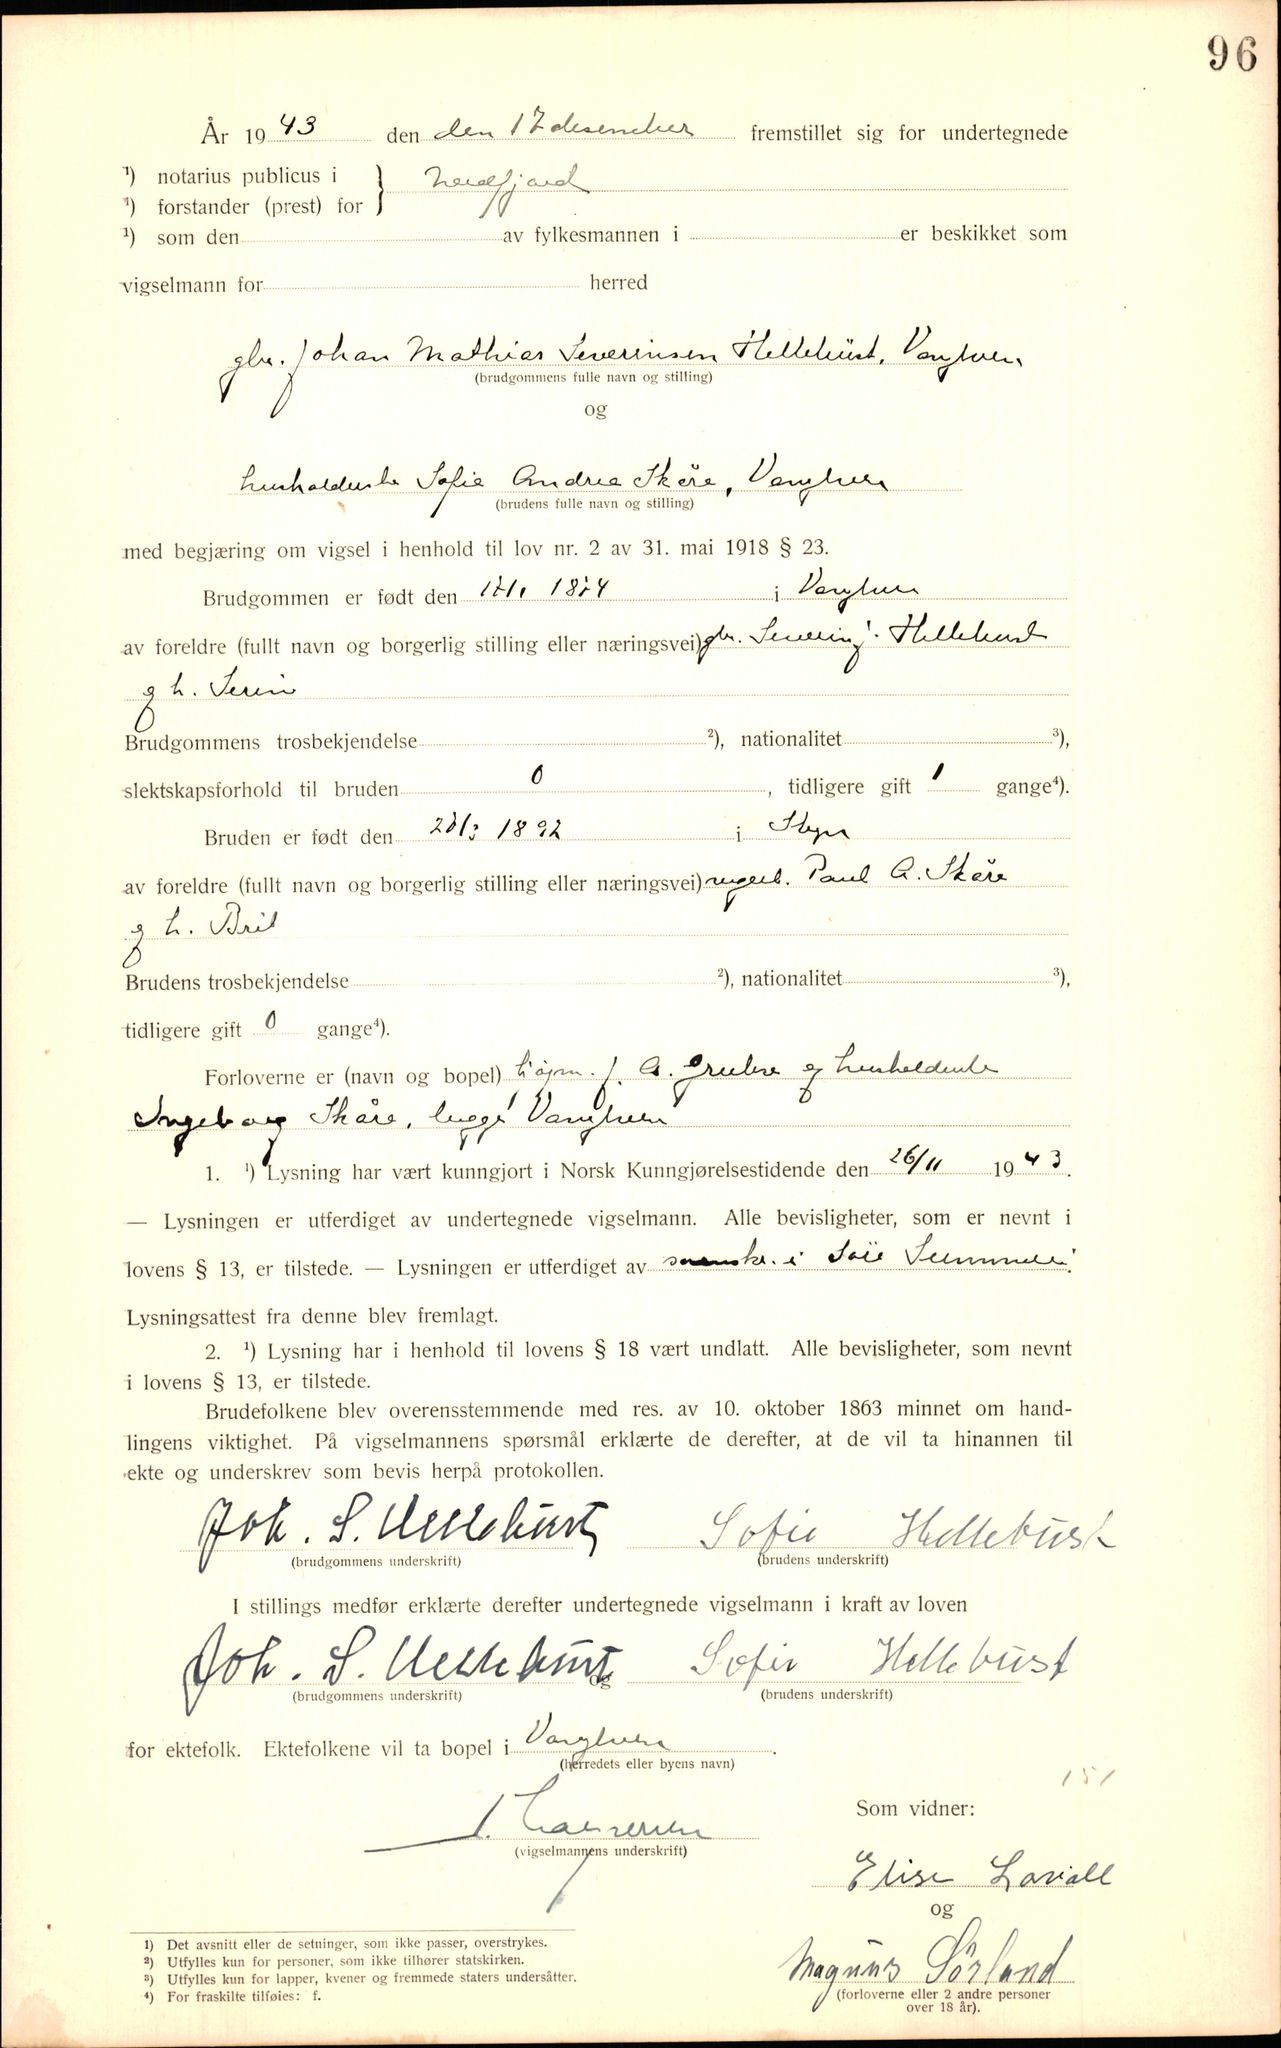 96
År 1943 den den 17 desember fremstillet sig for undertegnede
¹) notarius publicus i
¹) forstander (prest) for } Nordfjord
¹) som den av fylkesmannen i er beskikket som
vigselmann for herred
gbr. Johan Mathias Severinsen Hellebust, Vanylven
(brudgommens fulle navn og stilling)
og
husholderske Sofie Andrea Skåre, Vanylven
(brudens fulle navn og stilling)
med begjæring om vigsel i henhold til lov nr. 2 av 31. mai 1918 § 23.
Brudgommen er født den 1874 i Vanylven
av foreldre (fullt navn og borgerlig stilling eller næringsvei) gbr. Severin J. Hellebust
og h. Serine
Brudgommens trosbekjendelse ²), nationalitet ³),
slektskapsforhold til bruden 0, tidligere gift 1 gange⁴).
Bruden er født den 1892 i Stryn
av foreldre (fullt navn og borgerlig stilling eller næringsvei) Paul A. Skåre
og h. Brit
Brudens trosbekjendelse ²), nationalitet ³),
tidligere gift 0 gange⁴).
Forloverne er (navn og bopel) J. A. og husholderske
Ingeborg Skåre, begge Vanylven
1. ¹) Lysning har vært kunngjort i Norsk Kunngjørelsestidende den 26/11 1943.
— Lysningen er utferdiget av undertegnede vigselmann. Alle bevisligheter, som er nevnt i
lovens § 13, er tilstede. — Lysningen er utferdiget av sorenskr. i Søre Sunnmøre.
Lysningsattest fra denne blev fremlagt.
2. ¹) Lysning har i henhold til lovens § 18 vært undlatt. Alle bevisligheter, som nevnt
i lovens § 13, er tilstede.
Brudefolkene blev overensstemmende med res. av 10. oktober 1863 minnet om hand-
lingens viktighet. På vigselmannens spørsmål erklærte de derefter, at de vil ta hinannen til
ekte og underskrev som bevis herpå protokollen.
Joh. S. Hellebust Sofie Hellebust
(brudgommens underskrift) (brudens underskrift)
I stillings medfør erklærte derefter undertegnede vigselmann i kraft av loven
Joh. S. Hellebust og Sofie Hellebust
(brudgommens underskrift) (brudens underskrift)
for ektefolk. Ektefolkene vil ta bopel i Vanylven.
(herredets eller byens navn)
151
Som vidner:
(vigselmannens underskrift)
Elise Lovoll
og
Magnus Sørland
(forloverne eller 2 andre personer
over 18 år).
1) Det avsnitt eller de setninger, som ikke passer, overstrykes.
2) Utfylles kun for personer, som ikke tilhører statskirken.
3) Utfylles kun for lapper, kvener og fremmede staters undersåtter.
4) For fraskilte tilføies: f.